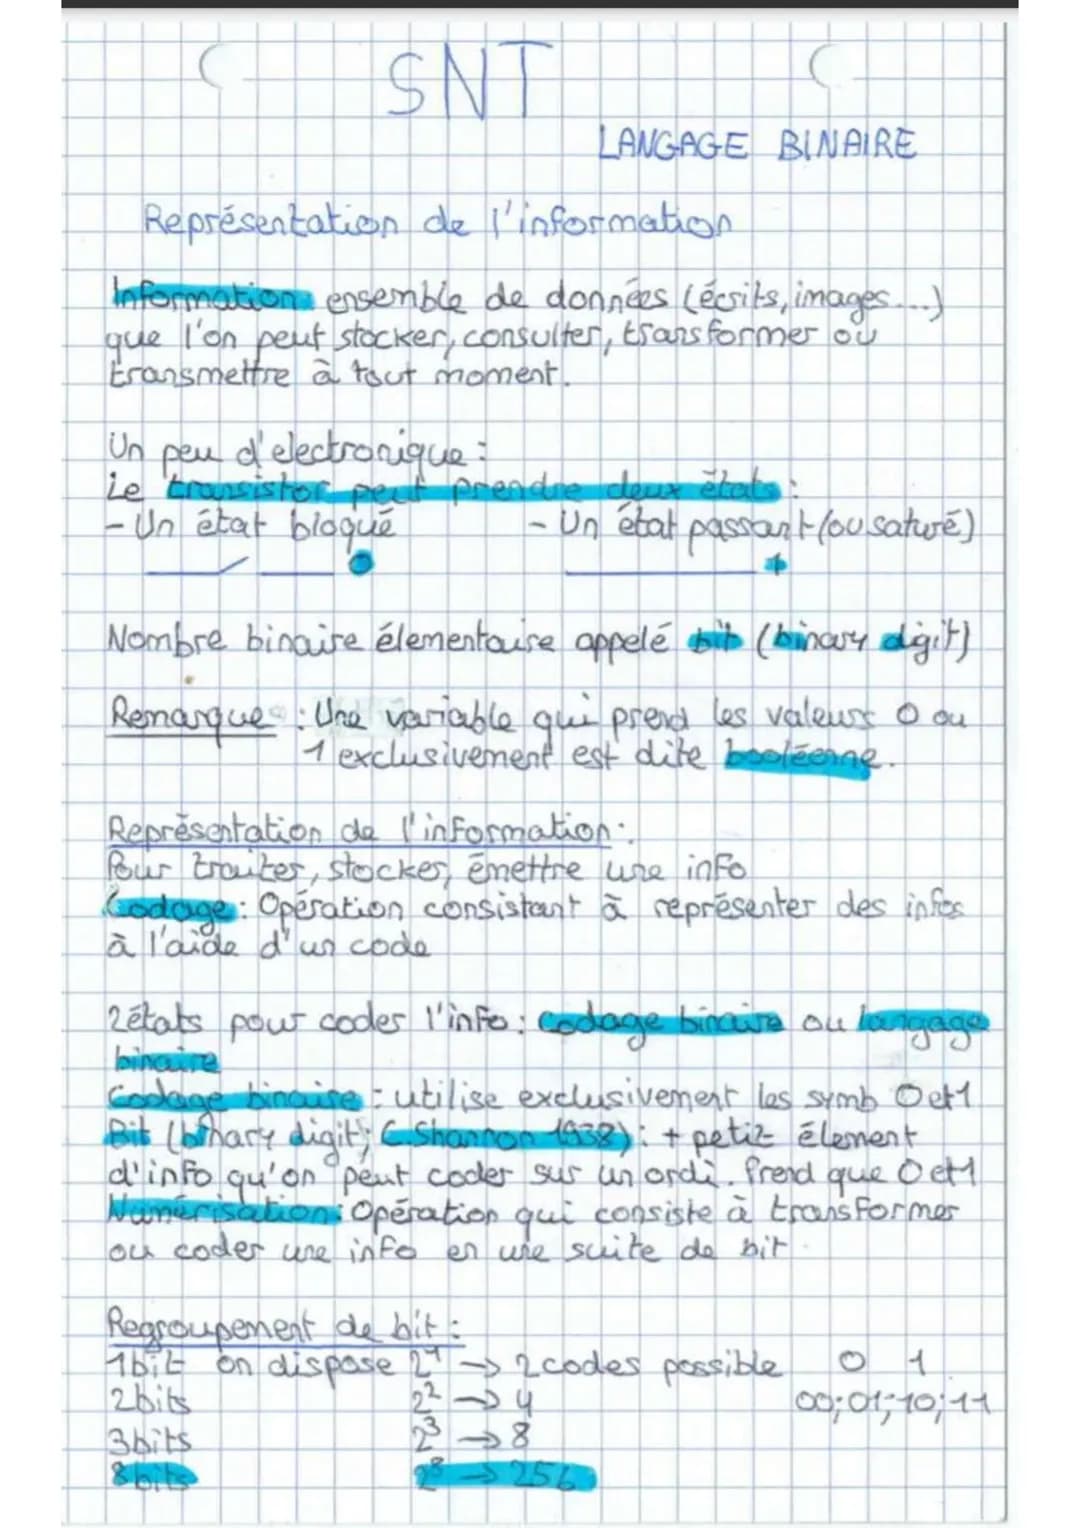 SNT
LANGAGE BINAIRE
Représentation de l'information
Information : ensemble de données (écrits, images...)
que l'on peut stocker, consulter, transformer ou
transmettre à tout moment.
Un peu d'electronique :
Le transistor peut prendre deux états :
- Un état bloqué - Un état passant (ou saturé)
0 1
Nombre binaire élementaire appelé bit (binary digit)
Remarque : Une variable qui prend les valeurs 0 ou
1 exclusivement est dite booléenne.
Représentation de l'information :
Pour traiter, stocker, émettre une info
Codage : Opération consistant à représenter des infos
à l'aide d'un code
2 états pour coder l'info : codage binaire ou langage
binaire
Codage binaire : utilise exclusivement les symb 0 et 1
Bit (binary digit; C. Shannon 1938) : + petit élement
d'info qu'on peut coder sur un ordi. Prend que 0 et 1
Numérisation : Opération qui consiste à transformer
ou coder une info en une suite de bit.
Regroupement de bit :
1 bit on dispose 2¹ → 2 codes possible 0 1
2 bits 2² → 4 00; 01; 10; 11
3 bits 2³ → 8
8 bits 2⁸ → 256